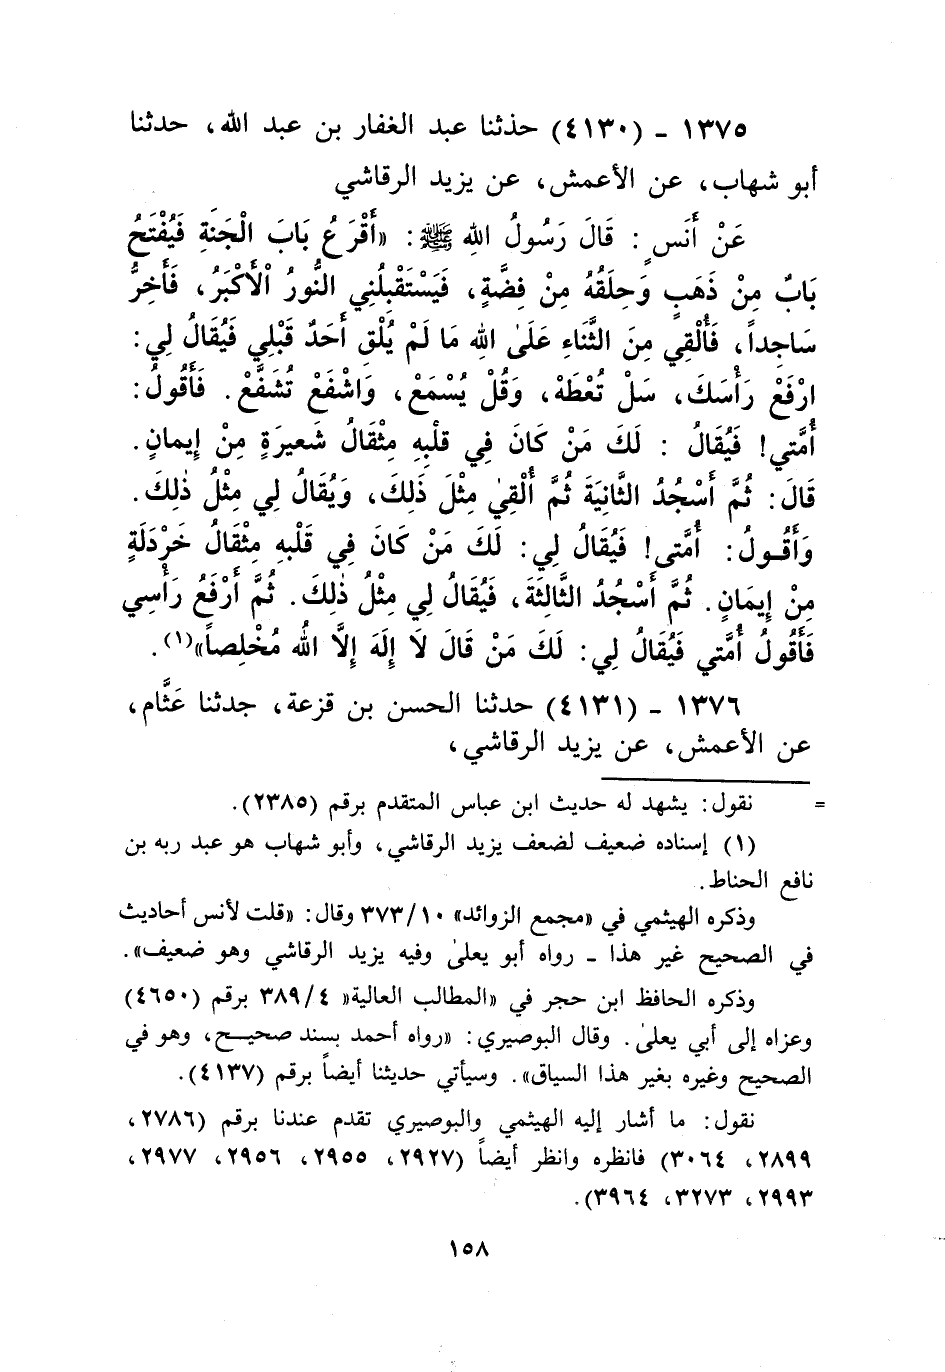 ١٣٧٥ - (٤١٣٠) حدثنا عبد الغفار بن عبد الله، حدثنا
أبو شهاب، عن الأعمش، عن يزيد الرقاشي
عَنْ أَنَسٍ: قَالَ رَسُولُ اللهِ ﷺ: «أَقْرَعُ بَابَ الْجَنَةِ فَيُفْتَحُ
بَابٌ مِنْ ذَهَبٍ وَحِلَقُهُ مِنْ فِضَّةٍ، فَيَسْتَقْبِلُنِي النُّورُ الْأَكْبَرُ، فَأَخِرُّ
سَاجِداً، فَأُلْقِي مِنَ الثَّنَاءِ عَلَىٰ اللهِ مَا لَمْ يُلْقِ أَحَدٌ قَبْلِي فَيُقَالُ لِي:
ارْفَعْ رَأْسَكَ، سَلْ تُعْطَهْ، وَقُلْ يُسْمَعْ، وَاشْفَعْ تُشَفَّعْ. فَأَقُولُ:
أُمَّتي! فَيُقَالُ: لَكَ مَنْ كَانَ فِي قلْبِهِ مِثْقَالُ شَعيرَةٍ مِنْ إِيمانٍ.
قَالَ: ثُمَّ أَسْجُدُ الثَّانِيَةَ ثُمَّ أُلْقِيٰ مِثْلَ ذَلِكَ، وَيُقَالُ لِي مِثْلُ ذٰلِكَ.
وَأَقُولُ: أُمَّتى! فَيُقَالُ لِي: لَكَ مَنْ كَانَ فِي قَلْبِهِ مِثْقَالُ خَرْدَلَةٍ
مِنْ إِيمَانٍ. ثُمَّ أَسْجُدُ الثَّالِثَةَ، فَيُقَالُ لِي مِثْلُ ذٰلِكَ. ثُمَّ أَرْفَعُ رَأْسِي
فَأَقُولُ أُمَّتي فَيُقَالُ لِي: لَكَ مَنْ قَالَ لَا إِلَهَ إِلَّا اللهُ مُخْلِصاً»(١).
١٣٧٦ - (٤١٣١) حدثنا الحسن بن قزعة، حدثنا عَثَّام،
عن الأعمش، عن يزيد الرقاشي،
= نقول: يشهد له حديث ابن عباس المتقدم برقم (٢٣٨٥).
(١) إسناده ضعيف لضعف يزيد الرقاشي، وأبو شهاب هو عبد ربه بن
نافع الحناط.
وذكره الهيثمي في «مجمع الزوائد» ٣٧٣/١٠ وقال: «قلت لأنس أحاديث
في الصحيح غير هذا - رواه أبو يعلىٰ وفيه يزيد الرقاشي وهو ضعيف».
وذكره الحافظ ابن حجر في «المطالب العالية» ٣٨٩/٤ برقم (٤٦٥٠)
وعزاه إلى أبي يعلىٰ. وقال البوصيري: «رواه أحمد بسند صحيح، وهو في
الصحيح وغيره بغير هذا السياق». وسيأتي حديثنا أيضاً برقم (٤١٣٧).
نقول: ما أشار إليه الهيثمي والبوصيري تقدم عندنا برقم (٢٧٨٦،
٢٨٩٩، ٣٠٦٤) فانظره وانظر أيضاً (٢٩٢٧، ٢٩٥٥، ٢٩٥٦، ٢٩٧٧،
٢٩٩٣، ٣٢٧٣، ٣٩٦٤).
١٥٨